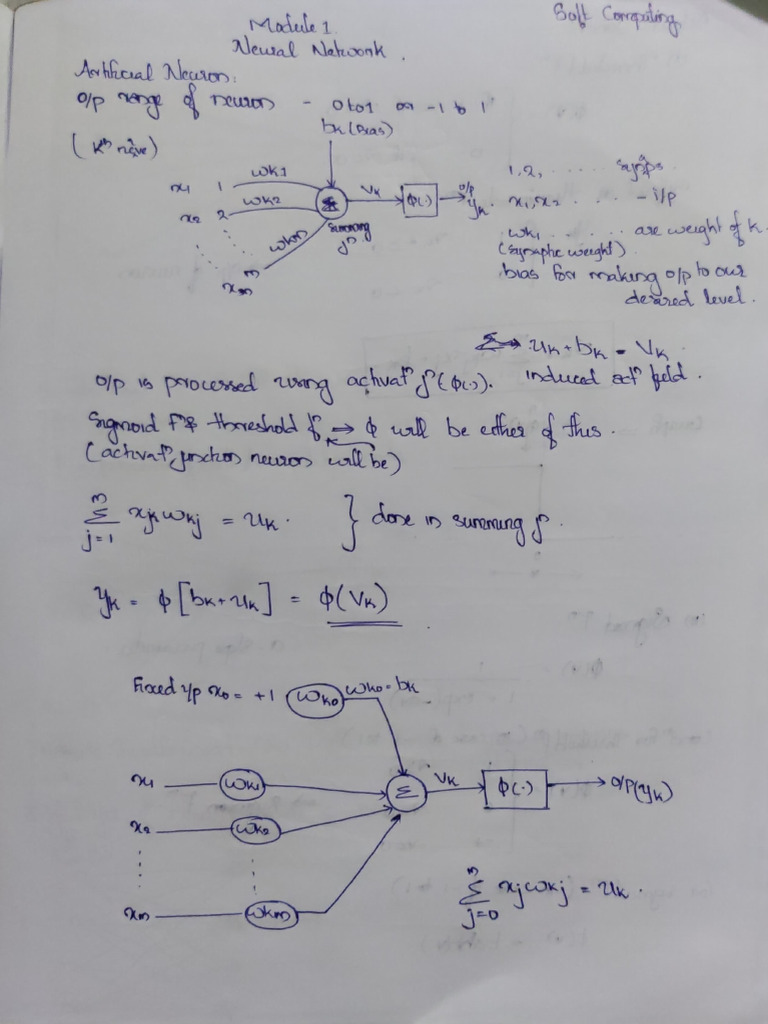 Soft Computing
Module 1.
Neural Network.
Artificial Neuron:
o/p range of neuron - 0 to 1 or -1 to 1
bk (Bias)
(Kth
x1 1 wk1
x2 2 wk2
xm m wkm
Σ
summing fn
Vk
Φ(.)
o/p
yk
1, 2, ......
x1, x2 ... - i/p
wk1 ...... are weight of k.
(synaptic weight)
bias for making o/p to our
desired level.
Σ → uk + bk = Vk
o/p is processed using activatn fn (Φ(.)). induced field.
Sigmoid fn & threshold fn → Φ will be either of this.
(activatn function neuron will be)
m
Σ xjk wkj = uk. } done in summing fn.
j=1
yk = Φ[bk+uk] = Φ(Vk)
Fixed i/p x0 = +1 wk0 wk0 = bk
x1 wk1 Σ Vk Φ(.) o/p(yk)
x2 wk2
xm wkm
m
Σ xj wkj = uk.
j=0